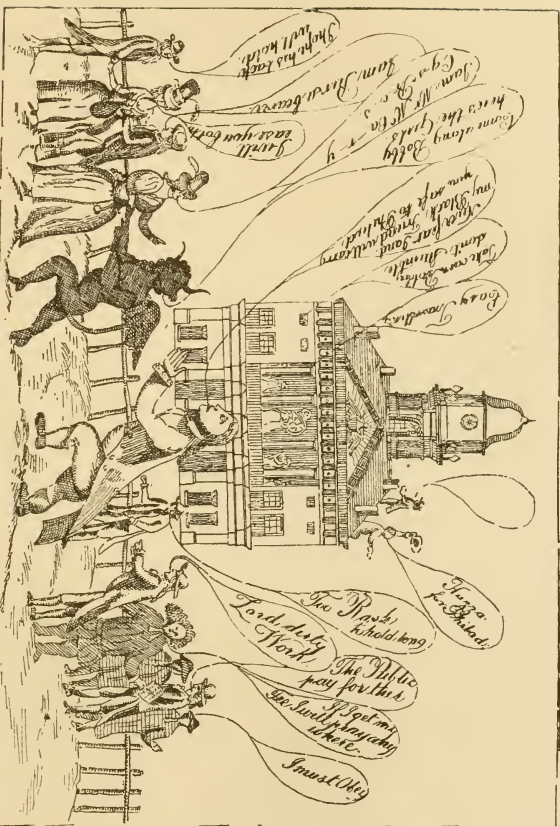 I hope his back
will hold.
beware
I will
ease you both
I am Mr
Come along Bobby
here's the Girls
Never fear
my Black friend will carry
you safe to Philad.
Take care Bobby
don't stumble
Easy Travelling
Huzza
for Philad.
Too Rash,
hold long
Lord, dirty
Work
The Public
pay for this
If I get my
fee I will pray any
where.
I must Obey